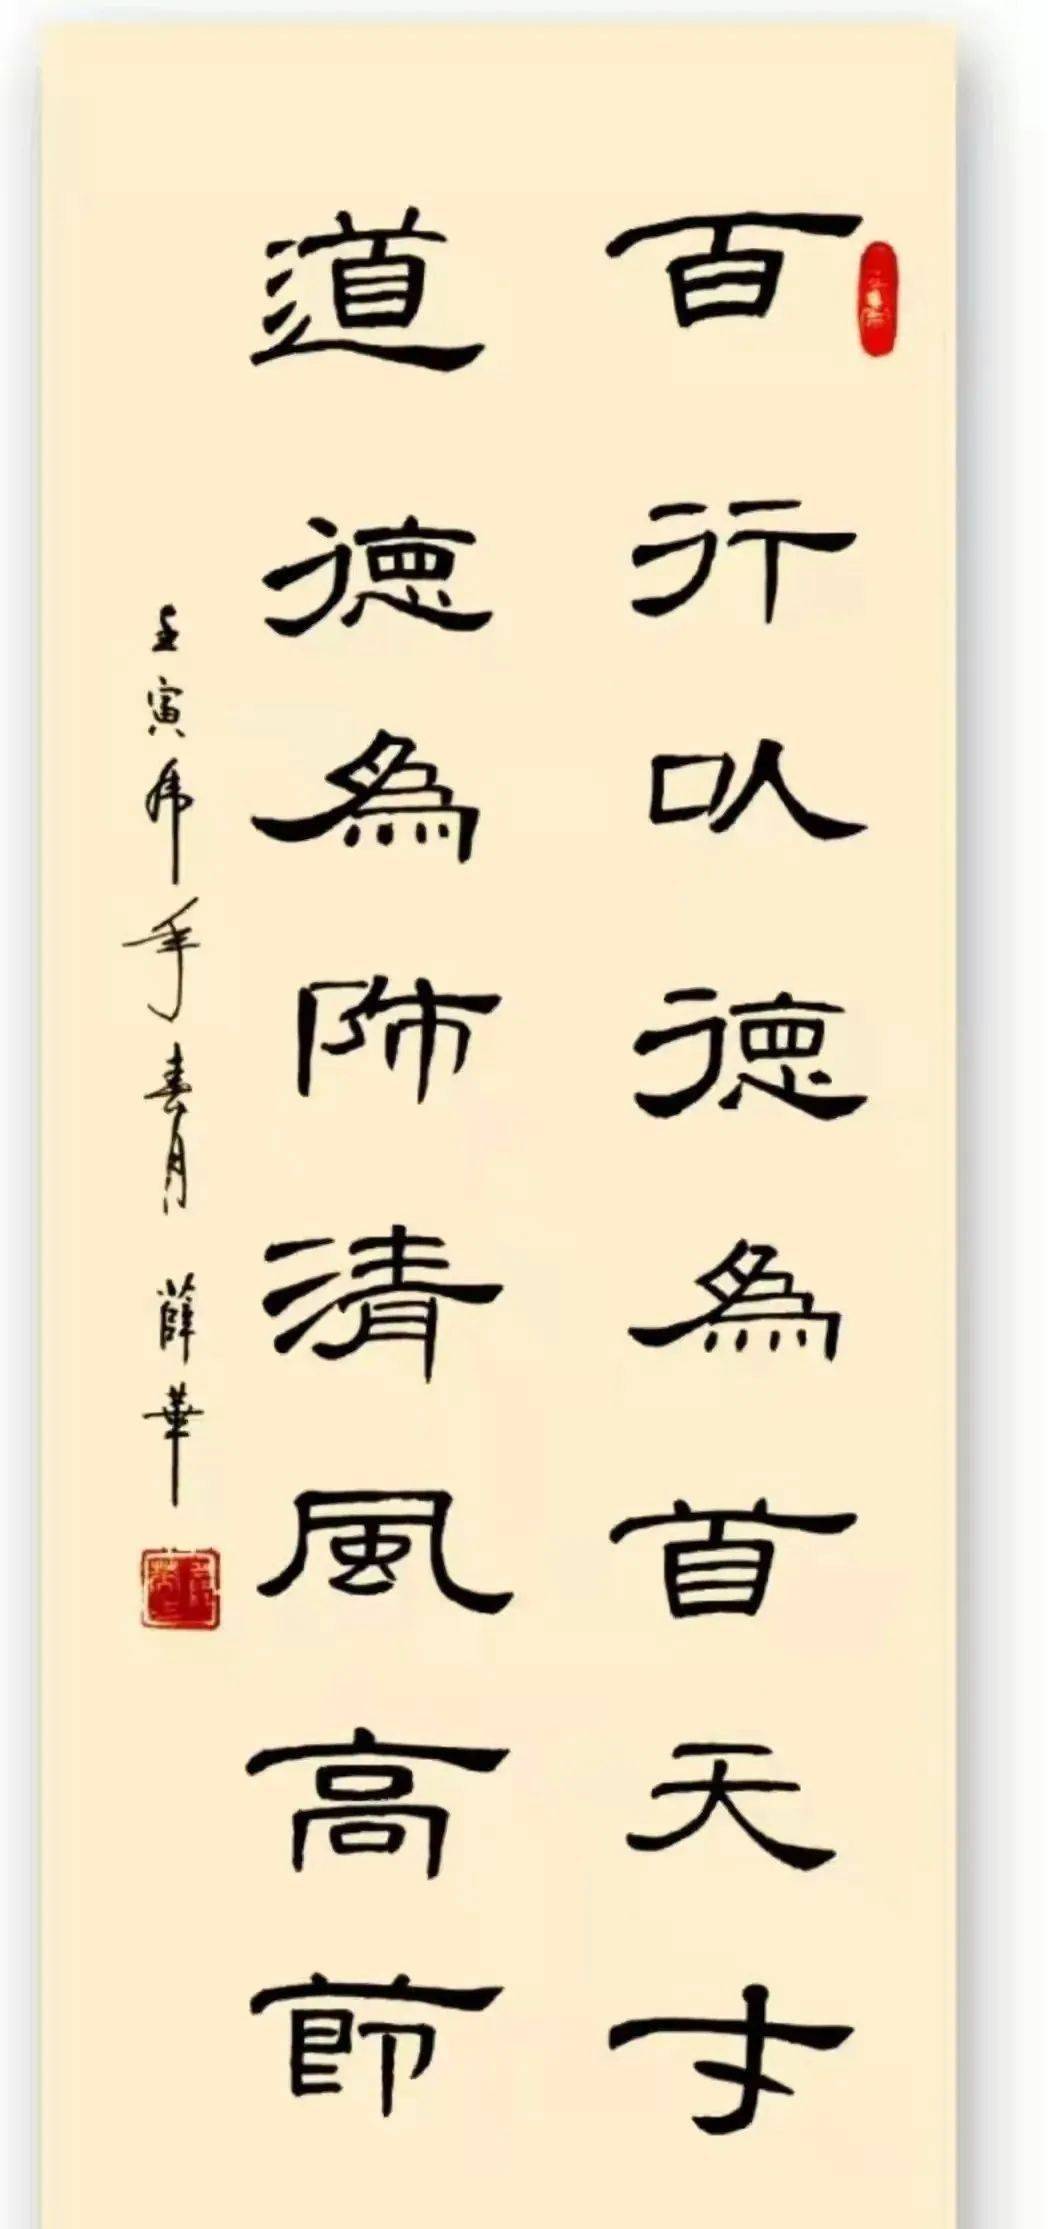 百行以德為首天才
道德為師清風高節
壬寅虎年春月 薛華